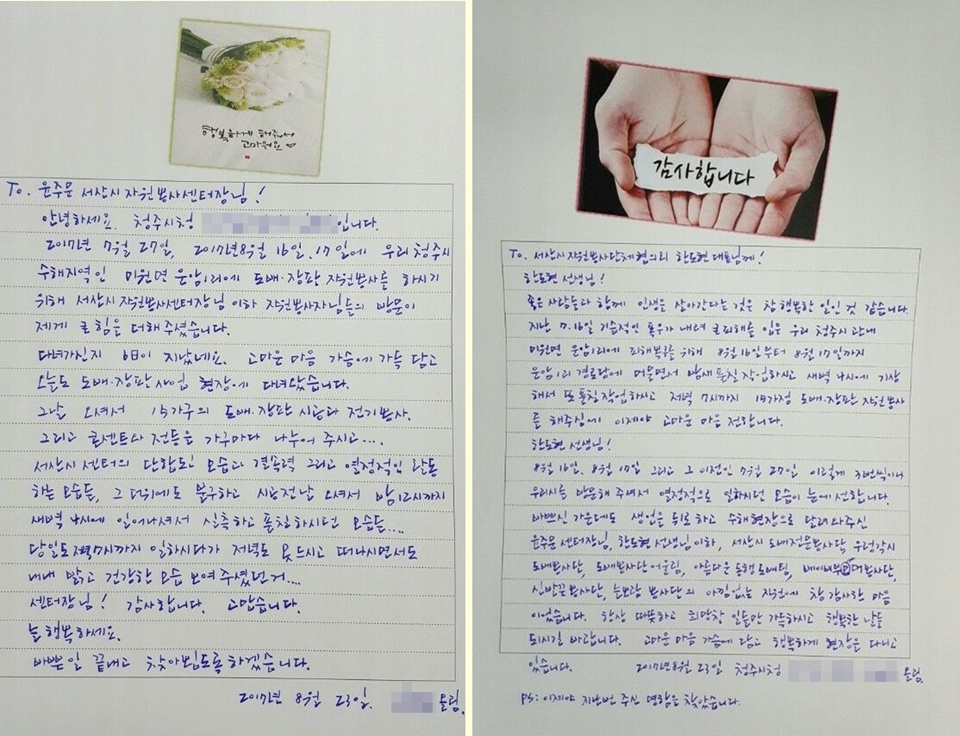 행복하게 해줘서
고마워요
To. 윤주문 서산시 자원봉사센터장님!
안녕하세요. 청주시청 입니다.
2017년 7월 27일, 2017년 8월 16일. 17일에 우리 청주시
수해지역인 미원면 운암리에 도배·장판 자원봉사를 하시기
위해 서산시 자원봉사센터장님 이하 자원봉사자님들의 방문이
제게 큰 힘을 더해 주셨습니다.
다녀가신지 6日이 지났네요. 고마운 마음 가슴에 가득 담고
오늘도 도배·장판사업 현장에 다녀왔습니다.
그날 오셔서 15가구의 도배·장판 시공과 전기봉사.
그리고 콘센트와 전등은 가구마다 나누어 주시고....
서산시 센터의 단합된 모습과 결속력 그리고 열정적인 활동
하는 모습들, 그 더위에도 불구하고 시공전날 오셔서 밤12시까지
새벽 4시에 일어나셔서 실측하고 풀칠하시던 모습들....
당일도 저녁 7시까지 일하시다가 저녁도 못 드시고 떠나시면서도
내내 맑고 건강한 모습 보여주셨던 거....
센터장님! 감사합니다. 고맙습니다.
늘 행복하세요.
바쁜일 끝내고 찾아뵙도록 하겠습니다.
2017년 8월 23일. 올림.
감사합니다
To. 서산시 자원봉사단체협의회 한도현 대표님께!
한도현 선생님!
좋은 사람들과 함께 인생을 살아간다는 것은 참 행복한 일인 것 같습니다
지난 7.16일 기습적인 폭우가 내려 큰 피해를 입은 우리 청주시 관내
미원면 운암리에 피해복구를 위해 8월 16일부터 8월 17일까지
운암리 경로당에 머물면서 밤새 풀칠 작업하시고 새벽 4시에 기상
해서 또 풀칠작업하시고 저녁 7시까지 15가정 도배·장판 자원봉사
를 해주심에 이제야 고마운 마음 전합니다.
한도현 선생님!
8월 16일. 8월 17일 그리고 그 이전인 7월 27일 이렇게 3번씩이나
우리시를 방문해 주셔서 열정적으로 일하시던 모습이 눈에 선합니다.
바쁘신 가운데도 생업을 뒤로 하고 수해현장으로 달려와주신
윤주문 센터장님, 한도현 선생님 이하, 서산시 도배전문봉사단, 우렁각시
도배봉사단, 도배봉사단 어울림, 아름다운 동행 도배팀, 베이비부머 봉사단,
신바람봉사단, 늘보람 봉사단의 아낌없는 지원에 참 감사한 마음
이었습니다. 항상 따뜻하고 희망찬 일들만 가득하시고 행복한 날들
되시길 바랍니다. 고마운 마음 가슴에 담고 행복하게 현장을 다니고
있습니다. 2017년 8월 23일 청주시청 올림.
PS: 이제야 지난번 주신 명함을 찾았습니다.